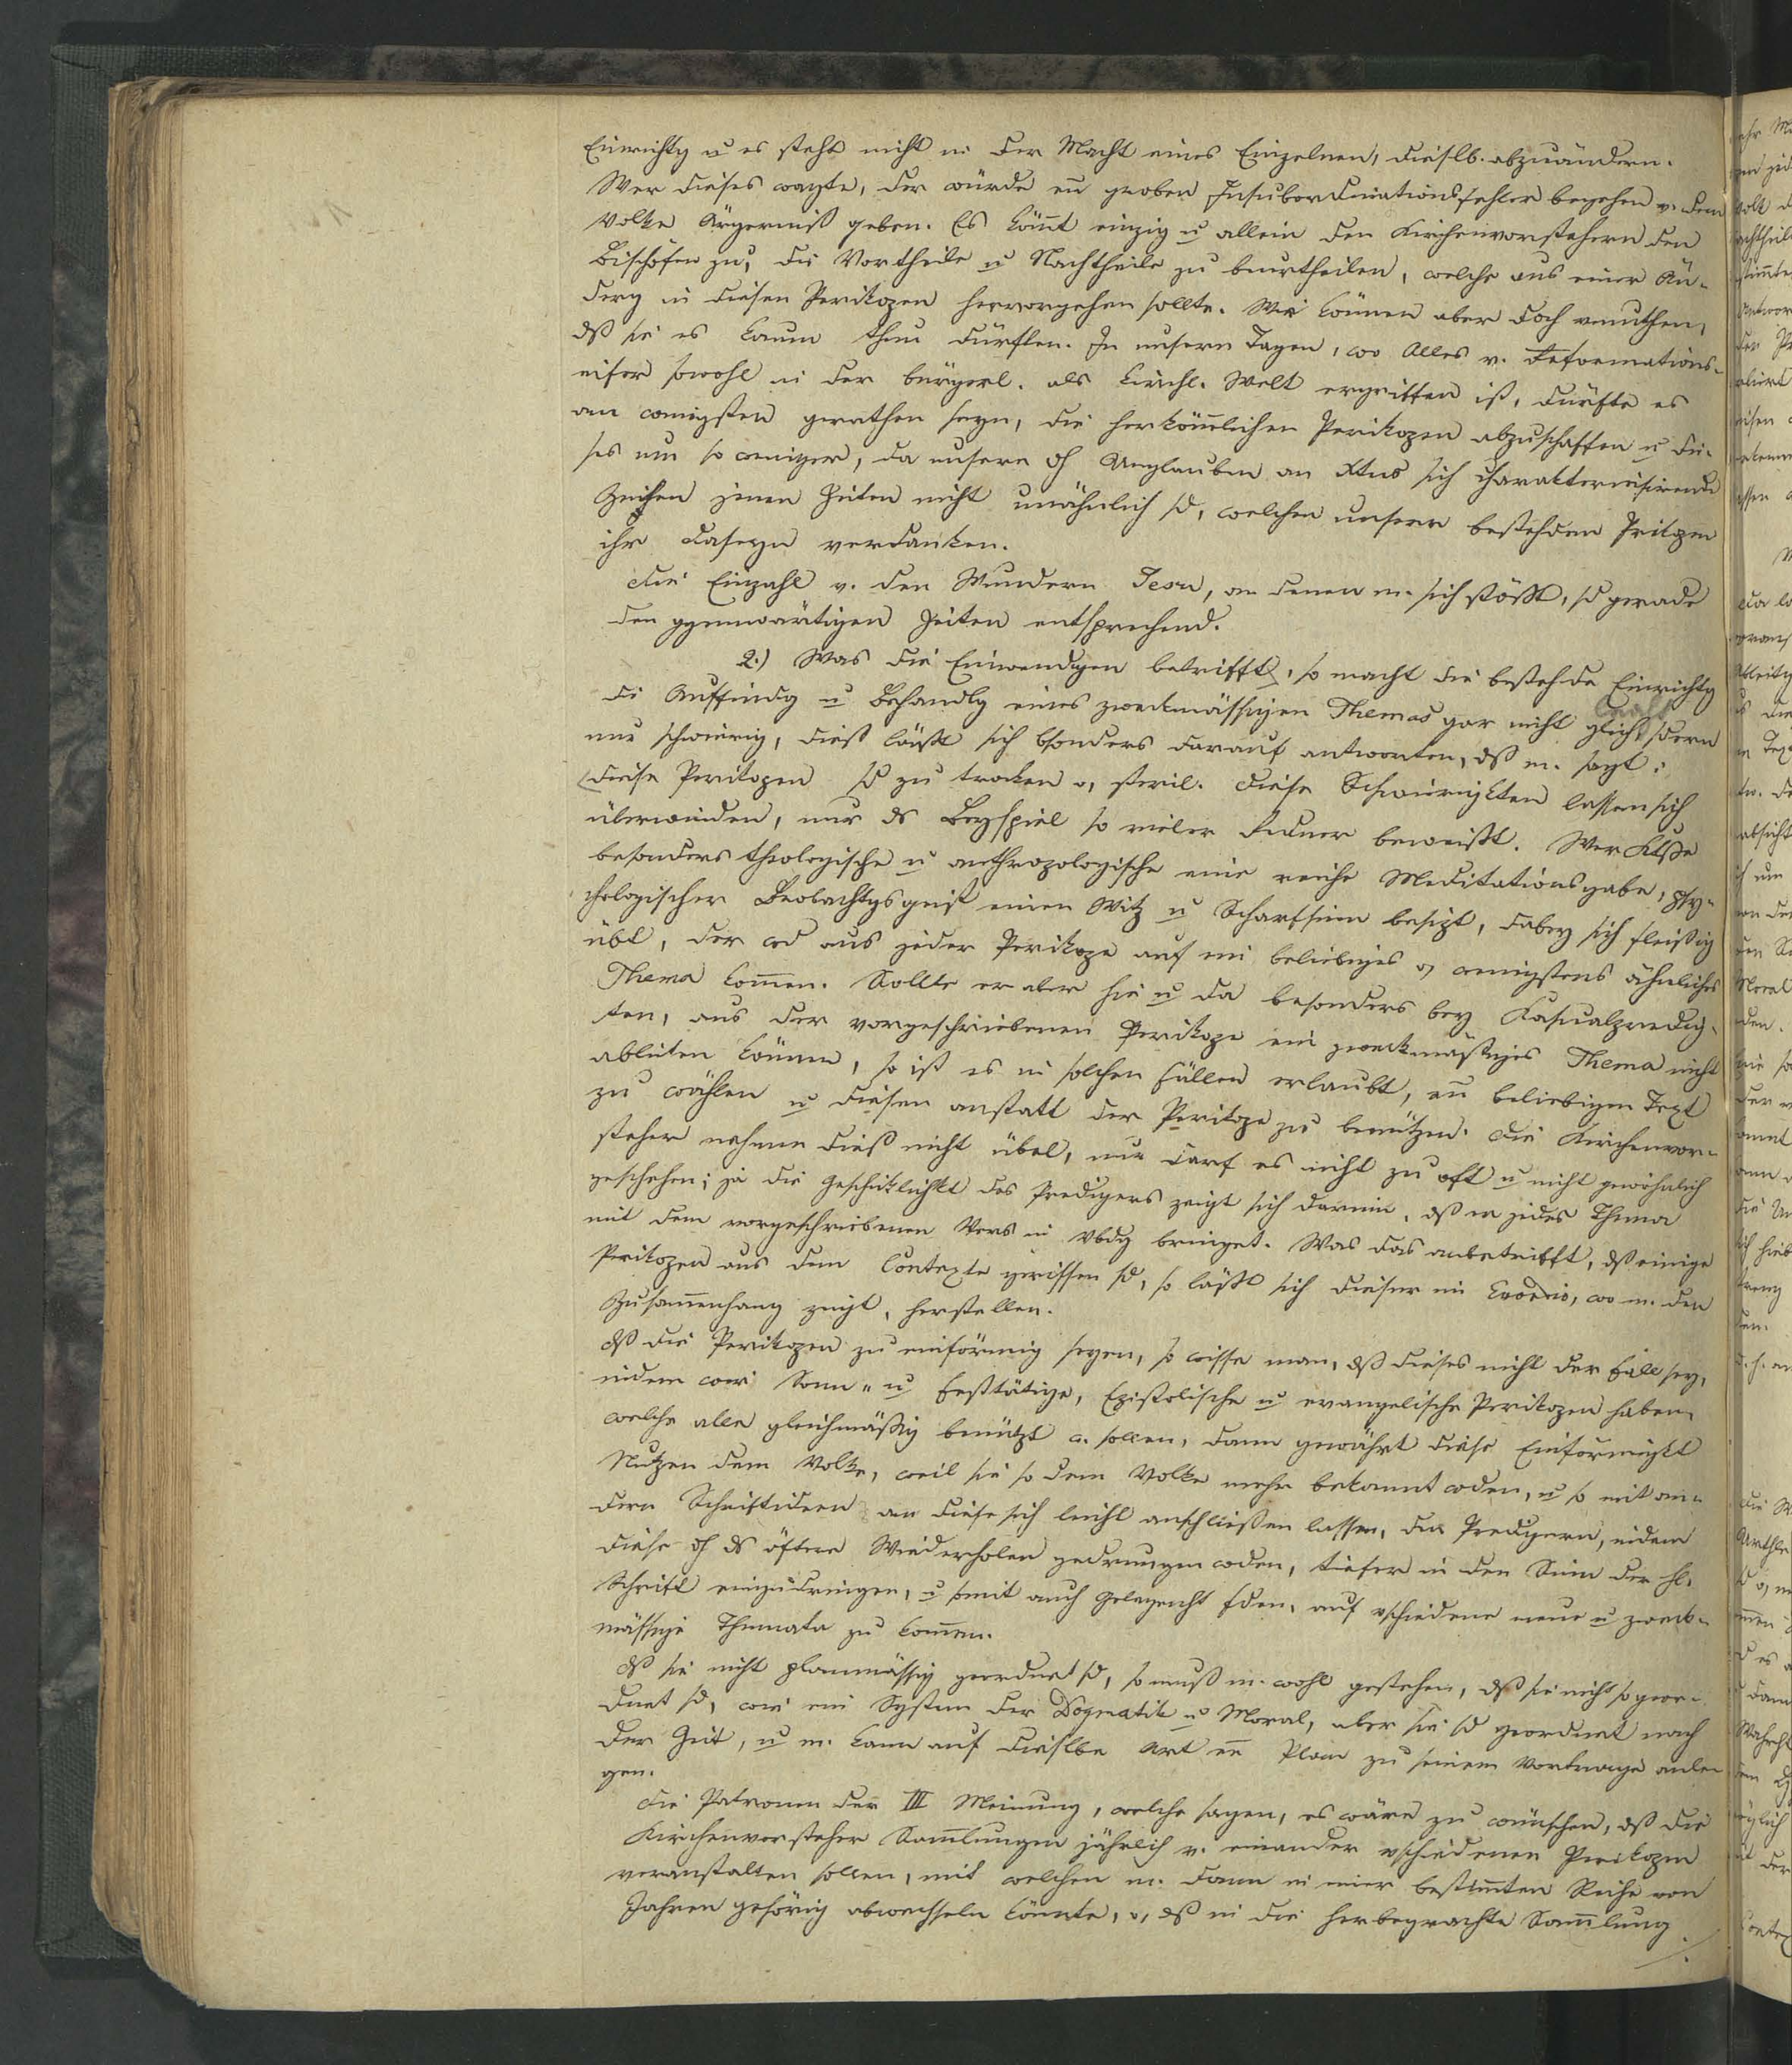 Einrichtg u es steht nicht in der Macht eines Einzelnen, dieslb. abzuändern.
Wer dieses wagte, der würde en groben Insubordinationsfehler begehen u. dem
Volke Ärgerniß geben. Es kom̄t einzig u allein den Kirchenvorstehern den
Bischöfen zu, die Vortheile u Nachtheile zu beurtheilen, welche aus einer Än-
derg in diesen Perikopen hervorgehen sollte. Wir können aber doch vermuthen,
dß sie es kaum thun dürften. In unsern Tagen, wo Alles v. Reformations-
eifer sowohl in der bürgerl. als kirchl. Welt ergriffen ist, dürfte es
am wenigsten gerathen seyn, die herkömlichen Perikopen abzuschaffen u die-
ses um so weniger, da unsere dh Unglauben an Xtus sich charakterisirende
Zeiten jenen Zeiten nicht unähnlich sd, welchen unsere bestehden Prikopen
ihr Daseyn verdanken.
Die Einzahl v. den Wundern Jesu, an denen m. sich stößt, sd gerade
den ggenwärtigen Zeiten entsprechend.
2.) Was die Einwendgen betrifft, so macht die bestehde Einrichtg
die Auffindg u Behandlg eines zweckmässigen Themas gar nicht sdern
nur schwierig, dieß läßt sich bsonders darauf antworten, dß m. sagt:
diese Perikopen sd zu trocken o, steril. Diese Schwierigkten lassen sich
überwinden, nur ds Beyspiel so vieler Redner beweißt. Wer
besonders theologische u anthropologische eine reiche Meditationsgabe, psy-
chologischer Beobachtgsgeist einen Witz u Scharfsinn besizt, dabey sich fleißig
übt, der wd aus jeder Perikope auf ein beliebiges o, wenigstens ähnliches
Thema kom̄en. Sollte er aber hie u da besonders bey Kasualpredig-
ten, aus der vorgeschriebenen Perikope ein zweckmäßiges Thema nicht
ableiten können, so ist es in solchen Fällen erlaubt, en beliebigen Text
zu wählen u diesen anstatt der Perikope zu benützen. Die Kirchenvor-
steher nehmen dieß nicht übel, nur darf es nicht zu oft u nicht gewöhnlich
geschehen; ja die Geschiklichkt des Predigers zeigt sich darinn, dß er jedes Thema
mit dem vorgeschriebenen Vers in Vbdg bringet. Was das anbetrifft, dß einige
Perikopen aus dem Contexte gerissen sd, so läßt sich dieser im Exordio, wo m. den
Zusam̄enhang zeigt, herstellen.
Dß die Perikopen zu einförmig seyen, so wisse man, dß dieses nicht der Fall sey,
indem wir Sonn- u Festtätige, Epistolische u evangelische Perikopen haben,
welche alle gleichmäßig benützt w. sollen, dann gewährt diese Einförmigkt
Nutzen dem Volke, weil sie so dem Volke mehr bekannt wden, u so mit an-
dern Schriftideen an diese sich leicht anschließen lassen, den Predigern, indem
diese dh ds öftere Wiederholen gedrungen wden, tiefer in den Sinn der hl.
Schrift einzudringen, u somit auch Gelegenht fden, auf vschiedene neue u zweck-
mässige Themata zu kom̄en.
Dß sie nicht planmässig geordnet sd, so muß m. wohl gestehen, dß sie nicht so geor-
dnet sd, wie ein System der Dogmatik u Moral, aber sie sd geordnet nach
der Zeit, u m. kann auf dieselbe Art en Plan zu seinem Vortrage anle-
gen.
Die Patronen der III Meinung, welche sagen, es wäre zu wünschen, dß die
Kirchenvorsteher Sam̄lungen jährlich v. einander vschiedenen Perikopen
veranstalten sollen, mit welchen m. dann in einer bestim̄ten Reihe von
Jahren gehörig abwechseln könnte, o, dß in die herbegrachte Sam̄lung